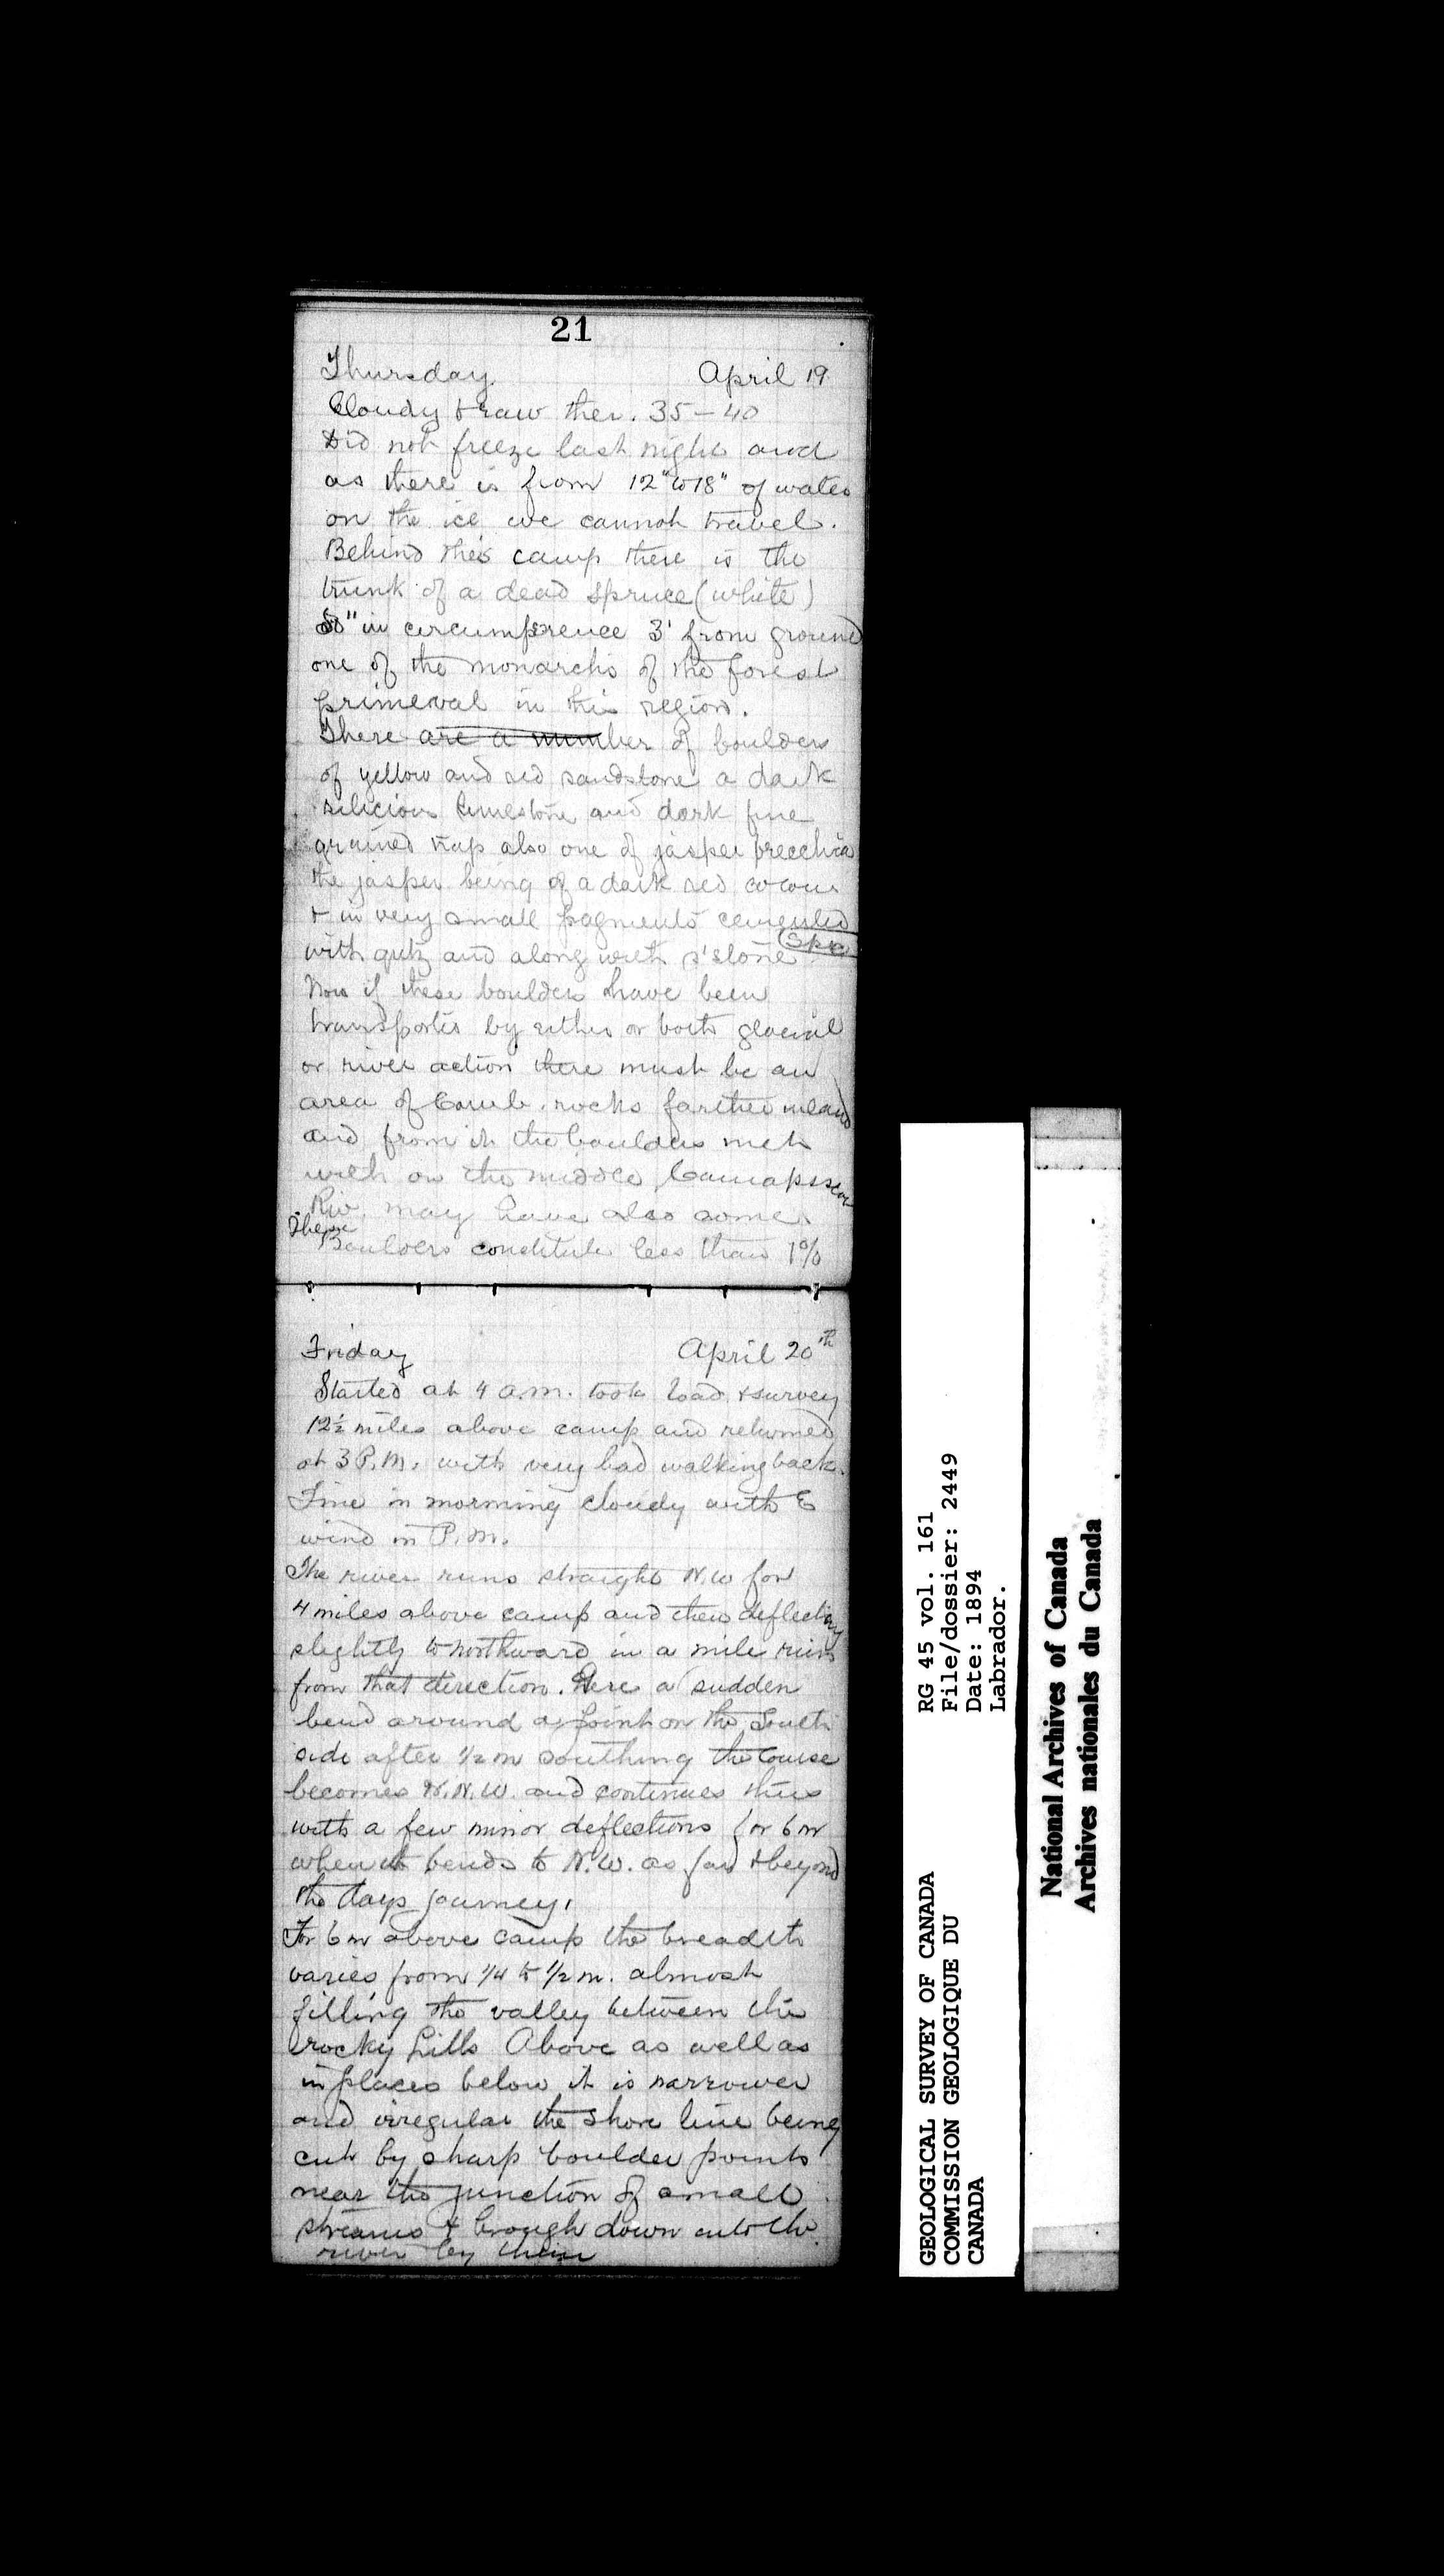 21
Thursday April 19
Cloudy & raw ther. 35–40
Did not freeze last night and
as there is from 12" to 18" of water
on the ice we cannot travel.
Behind this camp there is the
trunk of a dead spruce (white)
" in circumference 3' from ground
one of the monarchs of the forest
primeval in this region.
There are a number of boulders
of yellow and red sandstone a dark
silicious limestone and dark fine
grained trap also one of jasper brecchia
the jasper being of a dark red colour
& in very small fragments cemented
with qutz and along with s'stone Spec
Now if these boulders have been
transported by either or both glacial
or river action there must be an
area of Camb. rocks farther inland
and from it the boulders met
with on the middle Caniapscow
Riv. may have also come.
These Boulders constitute less than 1%
Friday April 20th
Started at 4 a.m. took load & survey
12½ miles above camp and returned
at 3 P.M. with very bad walking back.
Fine in morning cloudy with E
wind in P.M.
The river runs straight N.W for
4 miles above camp and then deflecting
slightly to northward in a mile runs
from that direction. Here a sudden
bend around a point on the South
side after 1/2 m southing the course
becomes W.N.W. and continues thus
with a few minor deflections for 6 m
when it bends to N.W. as far & beyond
the days journey.
For 6 m above camp the breadth
varies from 1/4 to 1/2 m. almost
filling the valley between the
rocky hills Above as well as
in places below it is narrower
and irregular the shore line being
cut by sharp boulder points
near the junction of small
streams & brough down into the
river by them
RG 45 vol. 161
File/dossier: 2449
Date: 1894
Labrador.
GEOLOGICAL SURVEY OF CANADA
COMMISSION GEOLOGIQUE DU
CANADA
National Archives of Canada
Archives nationales du Canada